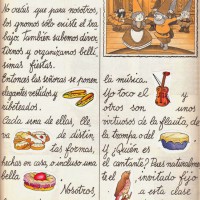 No creáis que para nosotros,
los gnomos sólo existe el tra
bajo. También sabemos diver
tirnos y organizamos bellí
simas fiestas.
Entonces las señoras se ponen
elegantes vestidos y
ribeteados.
Cada una de ellas, lle
va de distin
tas formas,
hechas en aros, o incluso una
bella
Nosotros,
la música...
Yo toco el y
otros son unos
virtuosos de la flauta, de
la trompa o del
Y ¿Quién es
el cantante? Pues naturalmente
el invitado fijo
a esta clase